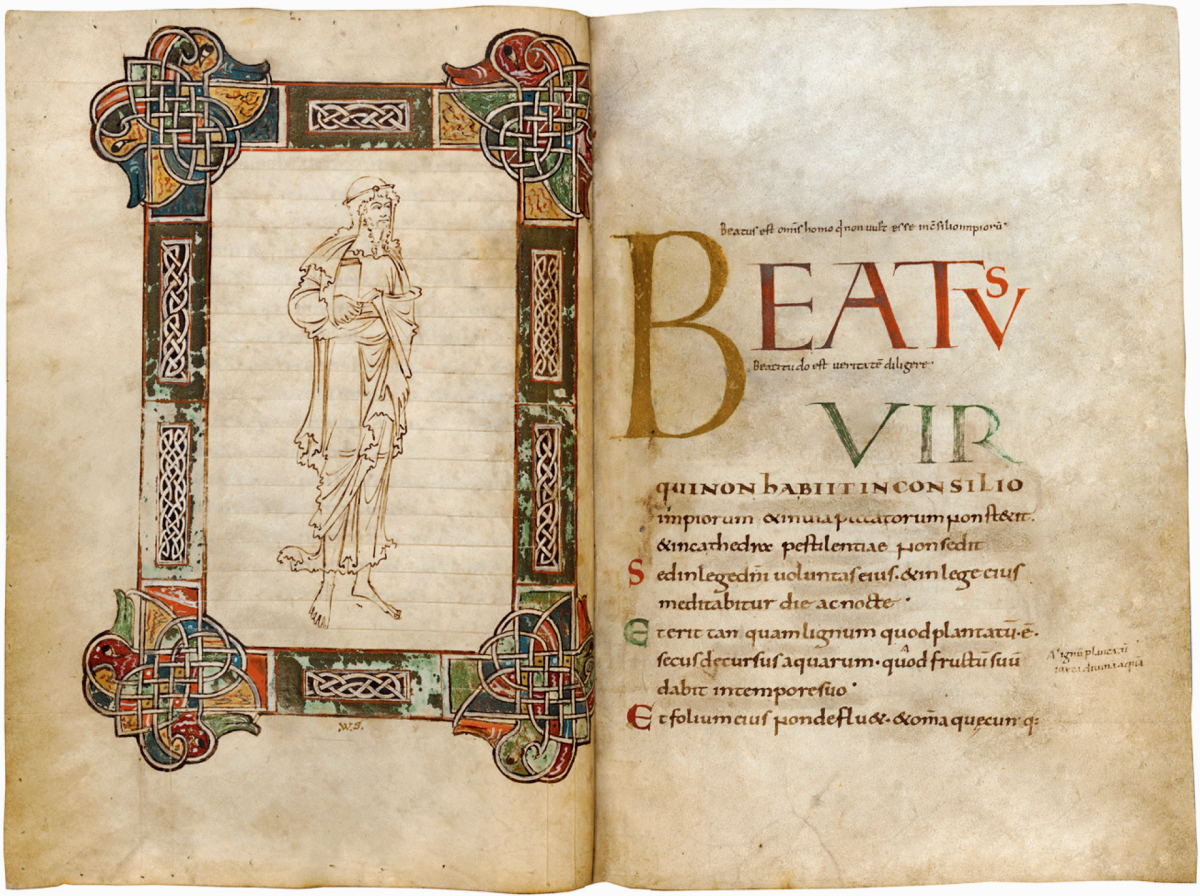 Beatus est om̄is homo q̄ non vult esse in c̄silio impiorū
BEATVS
Beatitudo est veritatē diligere
VIR
QUI NON hABIIT IN CONSILIO
impiorum & in via peccatorum non stetit.
& in cathedra pestilentiae non sedit
Sed in lege dn̄i voluntas eius. & in lege eius
meditabitur die ac nocte.
Et erit tan quam lignum quod plantatū. ē.
secus decursus aquarum. quod fructū suū
dabit in tempore suo.
Et folium eius non defluet. & om̄a quecun q: